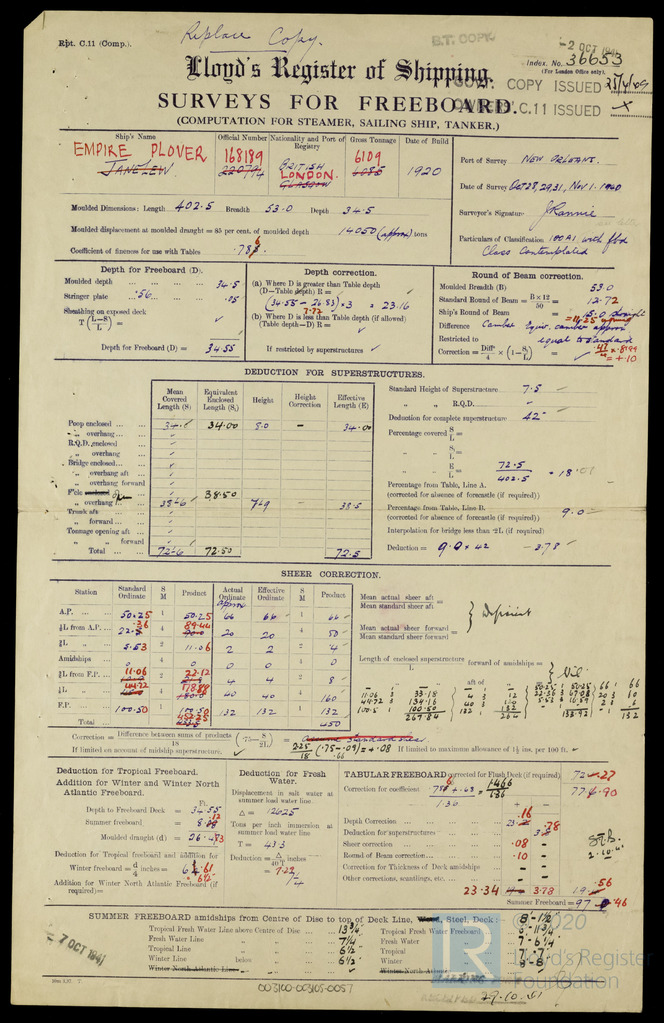 Rpt. C.11 (Comp.).
Replace Copy.
B.T. COPY
-2 OCT 1941
Index. No. 36653
(For London Office only).
Lloyd's Register of Shipping.
GOVT. COPY ISSUED
SURVEYS FOR FREEBOARD.
OWNERS C.11 ISSUED X
(COMPUTATION FOR STEAMER, SAILING SHIP, TANKER.)
Ship's Name
Official Number
Nationality and Port of Registry
Gross Tonnage
Date of Build
EMPIRE PLOVER
JANELEW
168189
BRITISH
LONDON.
GLASGOW
6109
1920
Port of Survey NEW ORLEANS.
Date of Survey Oct 28, 29, 31, Nov 1. 1940
Surveyor's Signature J Rannie
Particulars of Classification 100A1 with fbd
Class Contemplated
Moulded Dimensions: Length 402.5 Breadth 53.0 Depth 34.5
Moulded displacement at moulded draught = 85 per cent. of moulded depth 14050 (approx) tons
Coefficient of fineness for use with Tables .786
Depth for Freeboard (D).
Moulded depth 34.5
Stringer plate .56 .05
Sheathing on exposed deck
T (L–S / L) =
Depth for Freeboard (D) = 34.55
Depth correction.
(a) Where D is greater than Table depth
(D–Table depth) R =
(34.55 - 26.83) × 3 = 23.16
7.72
(b) Where D is less than Table depth (if allowed)
(Table depth–D) R =
If restricted by superstructures
Round of Beam correction.
Moulded Breadth (B) 53.0
Standard Round of Beam = B × 12 / 50 = 12.72
Ship's Round of Beam = 5.0 straight
Difference Camber Equiv. camber approx
Restricted to equal to standard
Correction = Diffce / 4 × (1 – S₁ / L) = = +.10
DEDUCTION FOR SUPERSTRUCTURES.
Mean Covered Length (S)
Equivalent Enclosed Length (S₁)
Height
Height Correction
Effective Length (E)
Poop enclosed 34.00 8.0 – 34.00
„ overhang
R.Q.D. enclosed
„ overhang
Bridge enclosed
„ overhang aft
„ overhang forward
F'cle enclosed 38.50
„ overhang 38-6 7-9 38.5
Trunk aft
„ forward
Tonnage opening aft
„ „ forward
Total 72-6 72.50 72.5
Standard Height of Superstructure 7.5
„ „ R.Q.D. –
Deduction for complete superstructure 42
Percentage covered S / L =
„ „ S₁ / L =
„ „ E / L = 72.5 / 402.5 = 18.01
Percentage from Table, Line A.
(corrected for absence of forecastle (if required))
Percentage from Table, Line B. 9.0
(corrected for absence of forecastle (if required))
Interpolation for bridge less than .2L (if required)
Deduction = 9.0 × 42 = 3.78
SHEER CORRECTION.
Station
Standard Ordinate
S M
Product
Actual Ordinate
approx
Effective Ordinate
S M
Product
A.P. 50.25 1 50.25 66 66 1 66
⅙L from A.P. 22.36 4 89.44 20 20 4 80
⅓L „ 5.53 2 11.06 2 2 2 4
Amidships 0 4 0 0 0 4 0
⅓L from F.P. 11.06 2 22.12 4 4 2 8
⅙L „ 44.72 4 178.88 40 40 4 160
F.P. 100.50 1 100.50 132 132 1 132
Total 452.25 450
Mean actual sheer aft =
Mean standard sheer aft
Mean actual sheer forward =
Mean standard sheer forward
Deficient
Length of enclosed superstructure / L forward of amidships =
„ aft of „ =
Nil
11.06 3 33.18 4 3 12
44.72 3 134.16 40 3 120
100.5 1 100.50 132 1 132
267.84 264
50.25 1 50.25 66 1 66
22.36 3 67.08 20 3 60
5.53 3 16.59 2 3 6
133.92 132
Correction = Difference between sums of products / 18 (.75 – S / 2L) =
If limited on account of midship superstructure.
2.25 / 18 (.75 - .09) = +.08
.66
If limited to maximum allowance of 1½ ins. per 100 ft.
Deduction for Tropical Freeboard.
Addition for Winter and Winter North Atlantic Freeboard.
Ft.
Depth to Freeboard Deck = 34.55
Summer freeboard = 8.12
Moulded draught (d) = 26.43
Deduction for Tropical freeboard and addition for
Winter freeboard = d / 4 inches = 6.61
= 6½
Addition for Winter North Atlantic Freeboard (if required) =
Deduction for Fresh Water.
Displacement in salt water at summer load water line
Δ = 12625
Tons per inch immersion at summer load water line
T = 43.3
Deduction = Δ / 40T inches
= 7.29
7¼
TABULAR FREEBOARD corrected for Flush Deck (if required) 72.27
Correction for coefficient .786 + .68 / 1.36 = 1.466 / 1.36 77.90
+ –
Depth Correction 23.16
Deduction for superstructures 3.78
Sheer correction .08 –
Round of Beam correction .10 –
Correction for Thickness of Deck amidships – –
Other corrections, scantlings, etc. – –
23.34 3.78 19.56
Summer Freeboard = 97.46
2.10.41
SUMMER FREEBOARD amidships from Centre of Disc to top of Deck Line, Wood, Steel, Deck: 8'-1½
Tropical Fresh Water Line above Centre of Disc 13¾
Fresh Water Line „ „ 7¼
Tropical Line „ „ 6½
Winter Line below „ „ 6½
Winter North Atlantic Line „ „
Tropical Fresh Water Freeboard 6'-11¾
Fresh Water „ 7'-6¼
Tropical „ 7'-7
Winter „ 8'-8
Winter North Atlantic „
7 OCT 1941
003160-003165-0057
29.10.41
LR
©2020
Lloyd's Register
Foundation